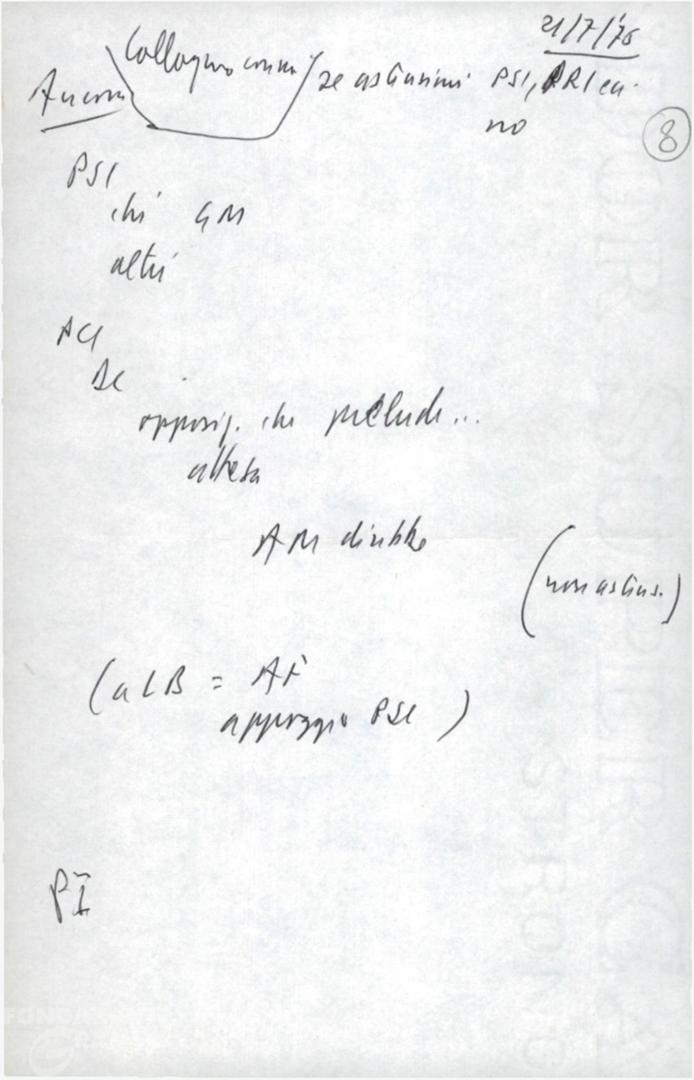 21/7/76
Colloquio
Ancora se astensioni PSI, PRI
no
8
PSI
chi GM
altri
DC
opposiz. che prelude...
attesa
AM
(non astens.)
(a LB = AF
appoggio PSI)
PI